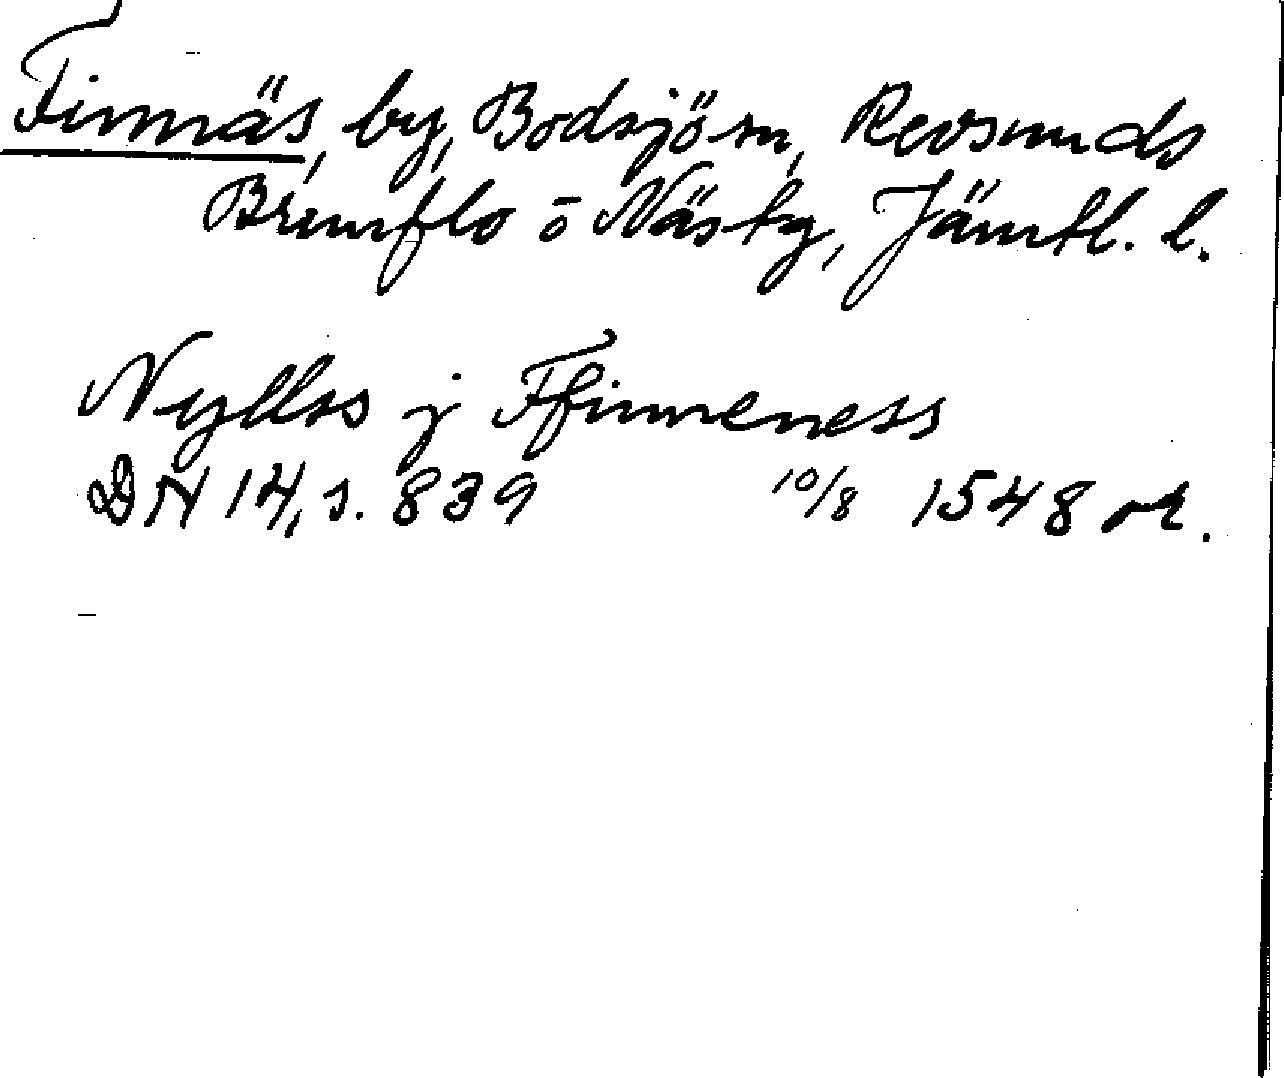 Finnäs, by, Bodsjö sn, Revsunds
Brunflo o Näs tg, Jämtl. l.
Nyllss j Ffinneness
DN 14, s. 839 10/8 1548 or.